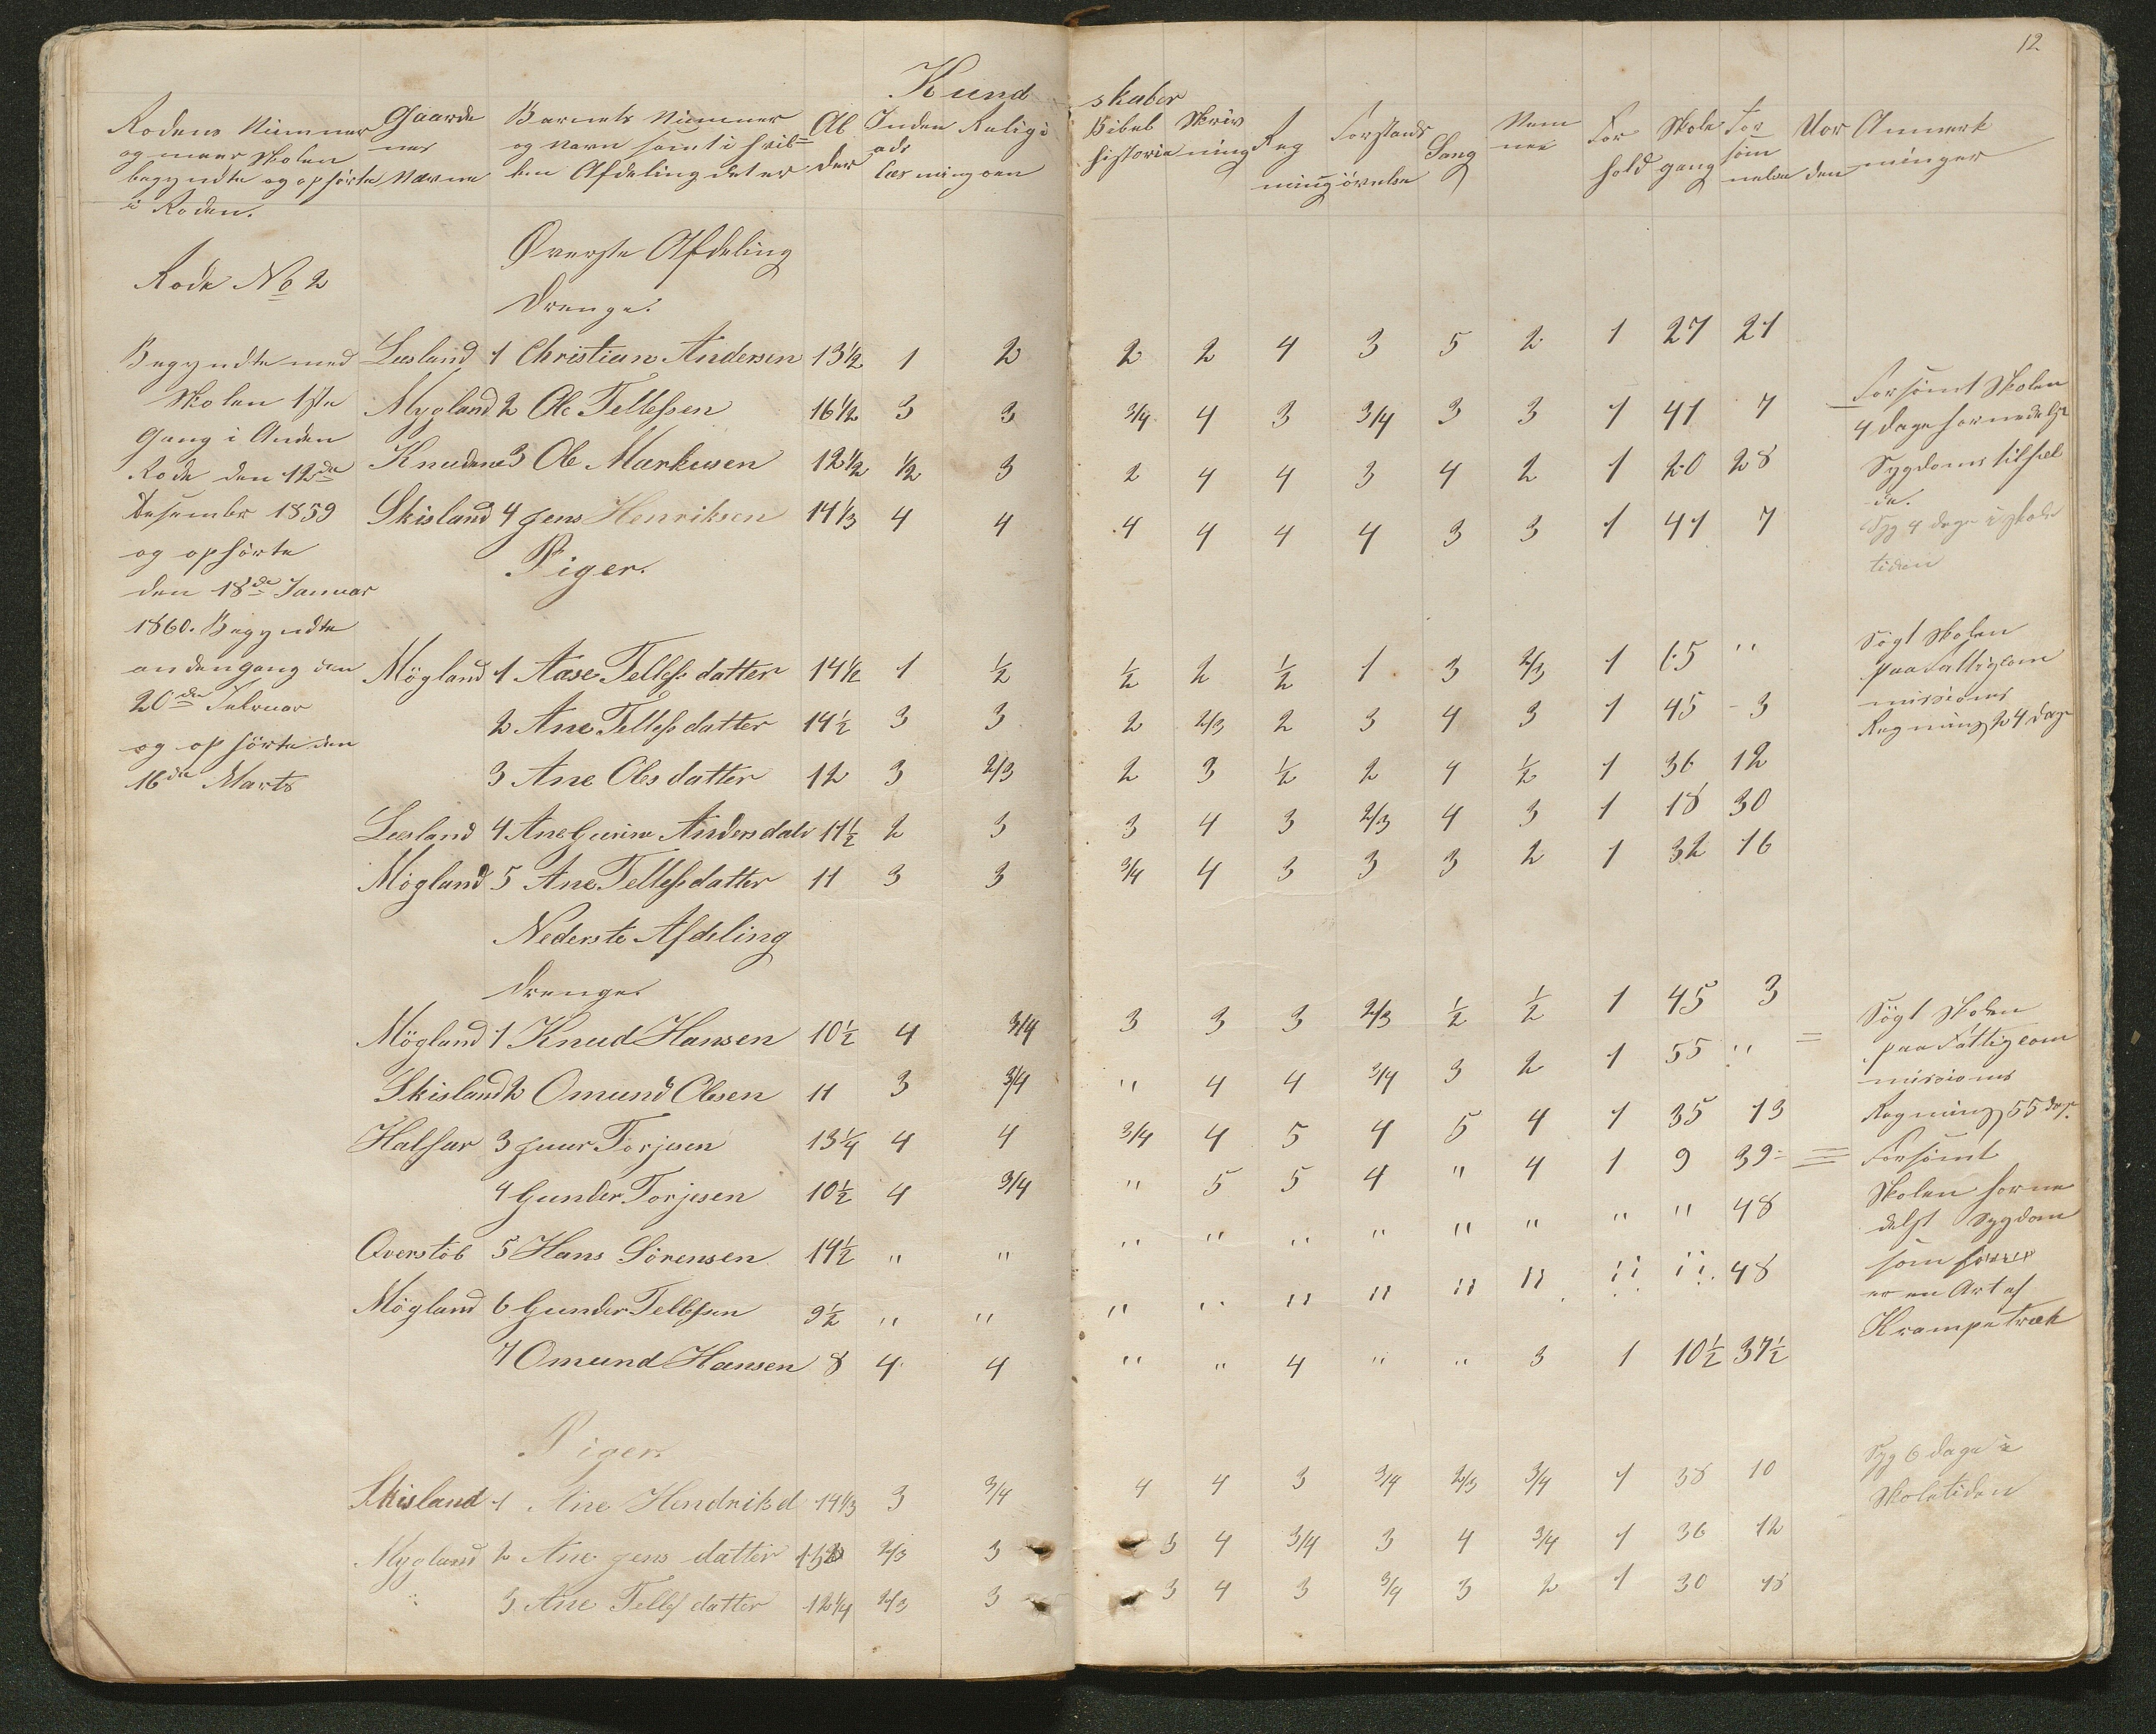 12
Kundskaber
Rodens Nummer og naar Skolen begyndte og ophörte i Roden.
Gaardenes Navne
Barnets Nummer og Navn samt i hvilken Afdeling det er
Alder
Inden ads læsning
Religionen
Bibel historie
Skrivning
Regning
Forstands övelse
Sang
Nemme
Forhold
Skolegang
Forsömmelse
Uorden
Anmerkninger
Rode No 2
Överste Afdeling
Drenge.
Begyndte med
Skolen 1ste
Gang i Anden
Rode den 12de
Desember 1859
og ophörte
den 18de Januar
1860. Begyndte
andengang den
20de Februar
og ophörte den
16de Marts
Leesland 1 Christian Andersen 13½ 1 2 2 2 4 3 5 2 1 27 21
Mygland 2 Ole Tellefsen 16½ 3 3 3/4 4 3 3/4 3 3 1 41 7
Knudene 3 Ole Markusen 12½ ½ 3 2 4 4 3 4 2 1 20 28
Skisland 4 Jens Henriksen 14⅓ 4 4 4 4 4 4 3 3 1 41 7
Forsömt Skolen
4 dage formedelst
Sygdoms tilfæl
de.
Syg 4 dage i skole
tiden
Piger.
Mögland 1 Aase Tellefsdatter 14½ 1 ½ ½ 2 ½ 1 3 2/3 1 65 "
2 Ane Tellefsdatter 14½ 3 3 2 2/3 2 3 4 3 1 45 3
3 Ane Olesdatter 12 3 2/3 2 3 ½ 2 4 ½ 1 36 12
Leesland 4 Ane Gurine Andersdatr 11½ 2 3 3 4 3 2/3 4 3 1 18 30
Mögland 5 Ane Tellefsdatter 11 3 3 3/4 4 3 3 3 2 1 32 16
Sögt Skolen
paa Fattigcom
missions
Regning 24 dage
Nederste Afdeling
Drenge.
Mögland 1 Knud Hansen 10½ 4 3/4 3 3 3 2/3 ½ ½ 1 45 3
Skisland 2 Omund Olesen 11 3 3/4 " 4 4 3/4 3 2 1 55 "
Halsar 3 Juur Torjesen 13¼ 4 4 3/4 4 5 4 5 4 1 35 13
4 Gunder Torjesen 10½ 4 3/4 " 5 5 4 " 4 1 9 39
Overstöb 5 Hans Sörensen 14½ " " " " " " " " " " 48
Mögland 6 Gunder Tellefsen 9½ " " " " " " " " " " 48
7 Omund Hansen 8 4 4 " " 4 " " 3 1 10½ 37½
Sögt Skolen
paa Fattigcom
missions
Regning 55 dage.
Forsömt
Skolen forme
delst Sygdom
som
er en Art af
Krampetræk
Piger.
Skisland 1 Ane Hendriksd 14⅓ 3 3/4 4 4 3 3/4 2/3 3/4 1 38 10
Mygland 2 Ane Jens datter 2/3 3 3 4 3/4 3 4 3/4 1 36 12
" 3 Ane Tellefsdatter 12¼ 2/3 3 3 4 3 3/4 3 2 1 30 18
Syg 6 dage i
Skoletiden